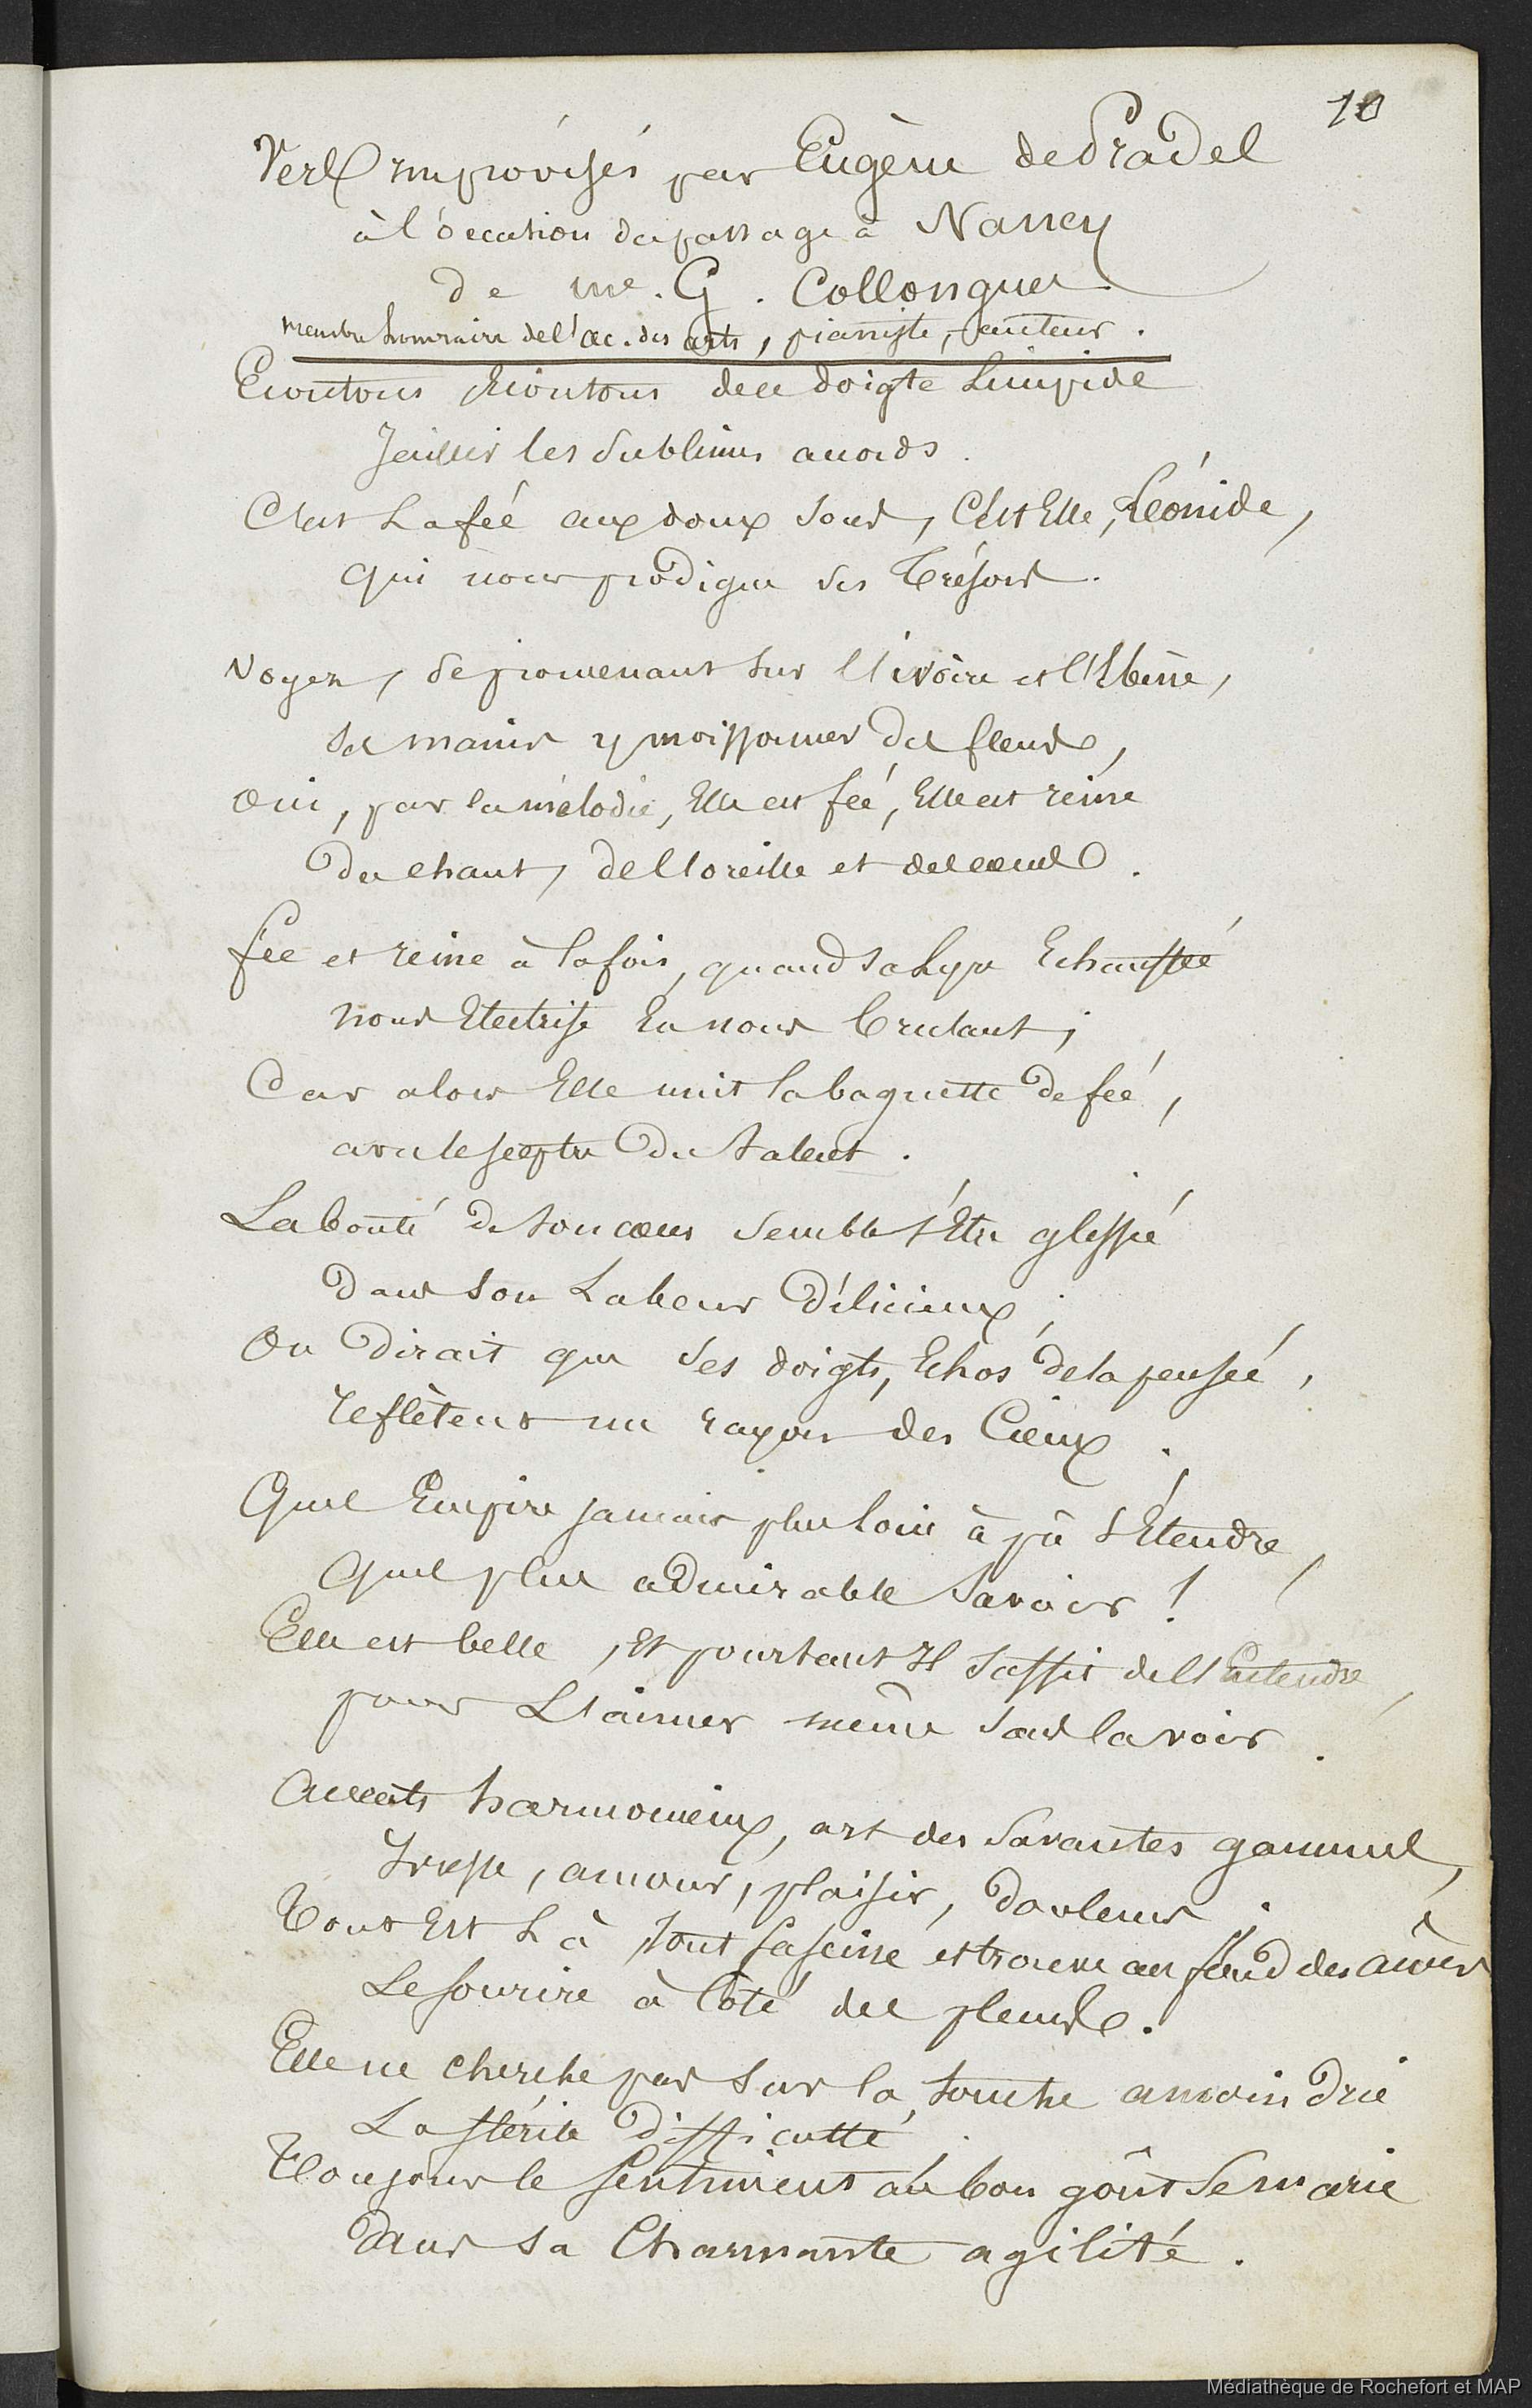 10
Vers improvisés par Eugène de Pradel
à l'occation du passage à Nancy
de me. G. Collongues
membre honoraire de l'ac. des arts, pianiste, auteur.
Ecoutons Ecoutons de ce doigté Limpide
Jaillir les sublimes accords.
C'est La fée aux doux sons, C'est Elle, Léonide,
qui nous prodigue ses Trésors.
Voyez, se promenant sur l'ivoire et l'Ebène,
ses mains y moissonner des fleurs,
Oui, par la mélodie, Elle est fée, Elle est reine
Du chant, de l'oreille et des cœurs.
fée et reine à la fois, quand sa Lyre Echauffée
nous Electrise En nous brulant;
Car alors Elle unit la baguette de fée,
avec le sceptre Du talent.
La bonté de son cœur semble s'Etre glissée
Dans son Labeur Délicieux;
On Dirait que ses doigts, Echos de la pensée,
reflètent un rayon des Cieux.
Quel Empire jamais plus loin à pû s'Etendre,
Quel plus admirable savoir!
Elle est belle, Et pourtant Il suffit de l'Entendre,
pour L'aimer même sans la voir.
Accents harmonieux, art des savantes gammes,
Ivresse, amour, plaisir, Douleurs;
Tout Est Là, tout fascine et trouve au fond des âmes
Le sourire à côté des pleurs.
Elle ne cherche pas sur la touche amoindrie
La stérile Difficulté,
Toujours le sentiment au bon goût se marie
Dans sa Charmante agilité.
Médiathèque de Rochefort et MAP